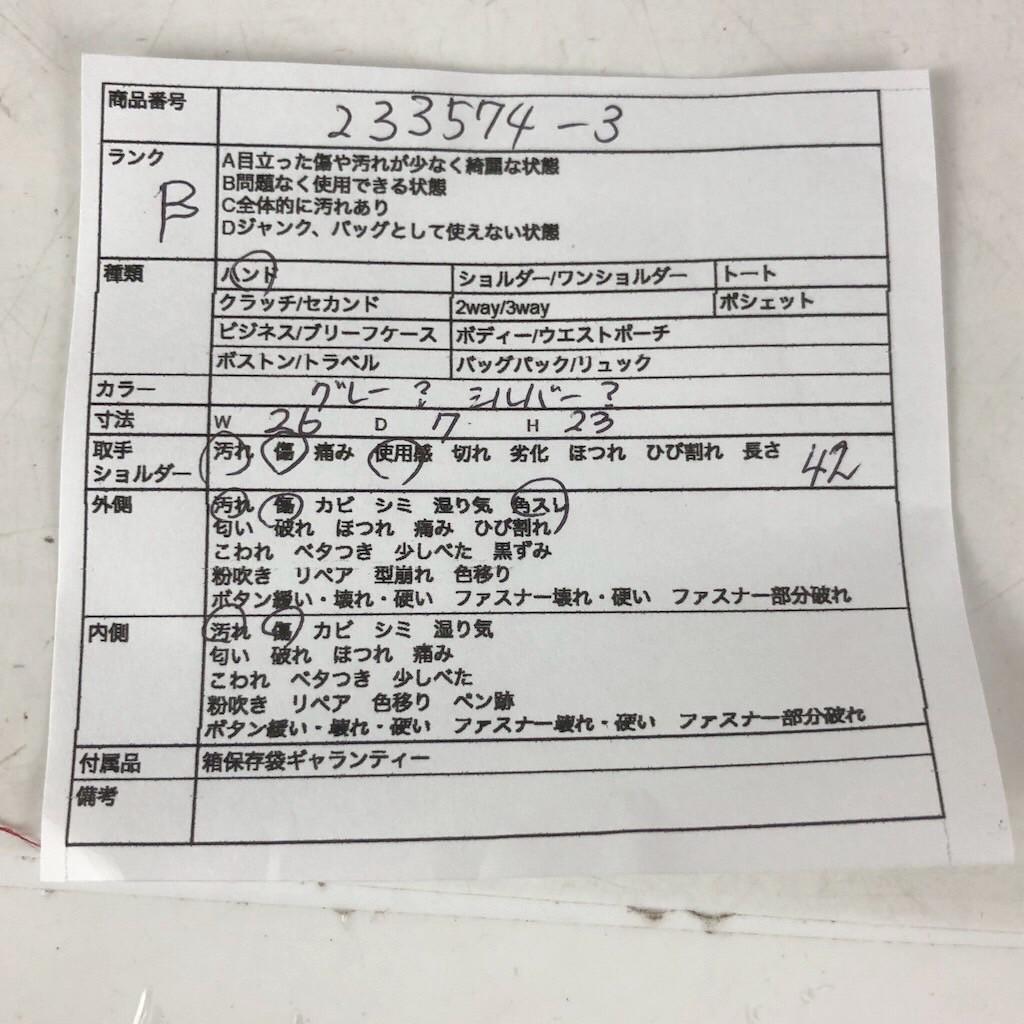 商品番号 233574-3
ランク B
A目立った傷や汚れが少なく綺麗な状態
B問題なく使用できる状態
C全体的に汚れあり
Dジャンク、バッグとして使えない状態
種類 ハンド ショルダー/ワンショルダー トート
クラッチ/セカンド 2way/3way ポシェット
ビジネス/ブリーフケース ボディー/ウエストポーチ
ボストン/トラベル バッグパック/リュック
カラー グレー? シルバー?
寸法 W 26 D 7 H 23
取手 汚れ 傷 痛み 使用感 切れ 劣化 ほつれ ひび割れ 長さ 42
ショルダー
外側 汚れ 傷 カビ シミ 湿り気 角スレ
匂い 破れ ほつれ 痛み ひび割れ
こわれ ベタつき 少しべた 黒ずみ
粉吹き リペア 型崩れ 色移り
ボタン緩い・壊れ・硬い ファスナー壊れ・硬い ファスナー部分破れ
内側 汚れ 傷 カビ シミ 湿り気
匂い 破れ ほつれ 痛み
こわれ ベタつき 少しべた
粉吹き リペア 色移り ペン跡
ボタン緩い・壊れ・硬い ファスナー壊れ・硬い ファスナー部分破れ
付属品 箱保存袋ギャランティー
備考